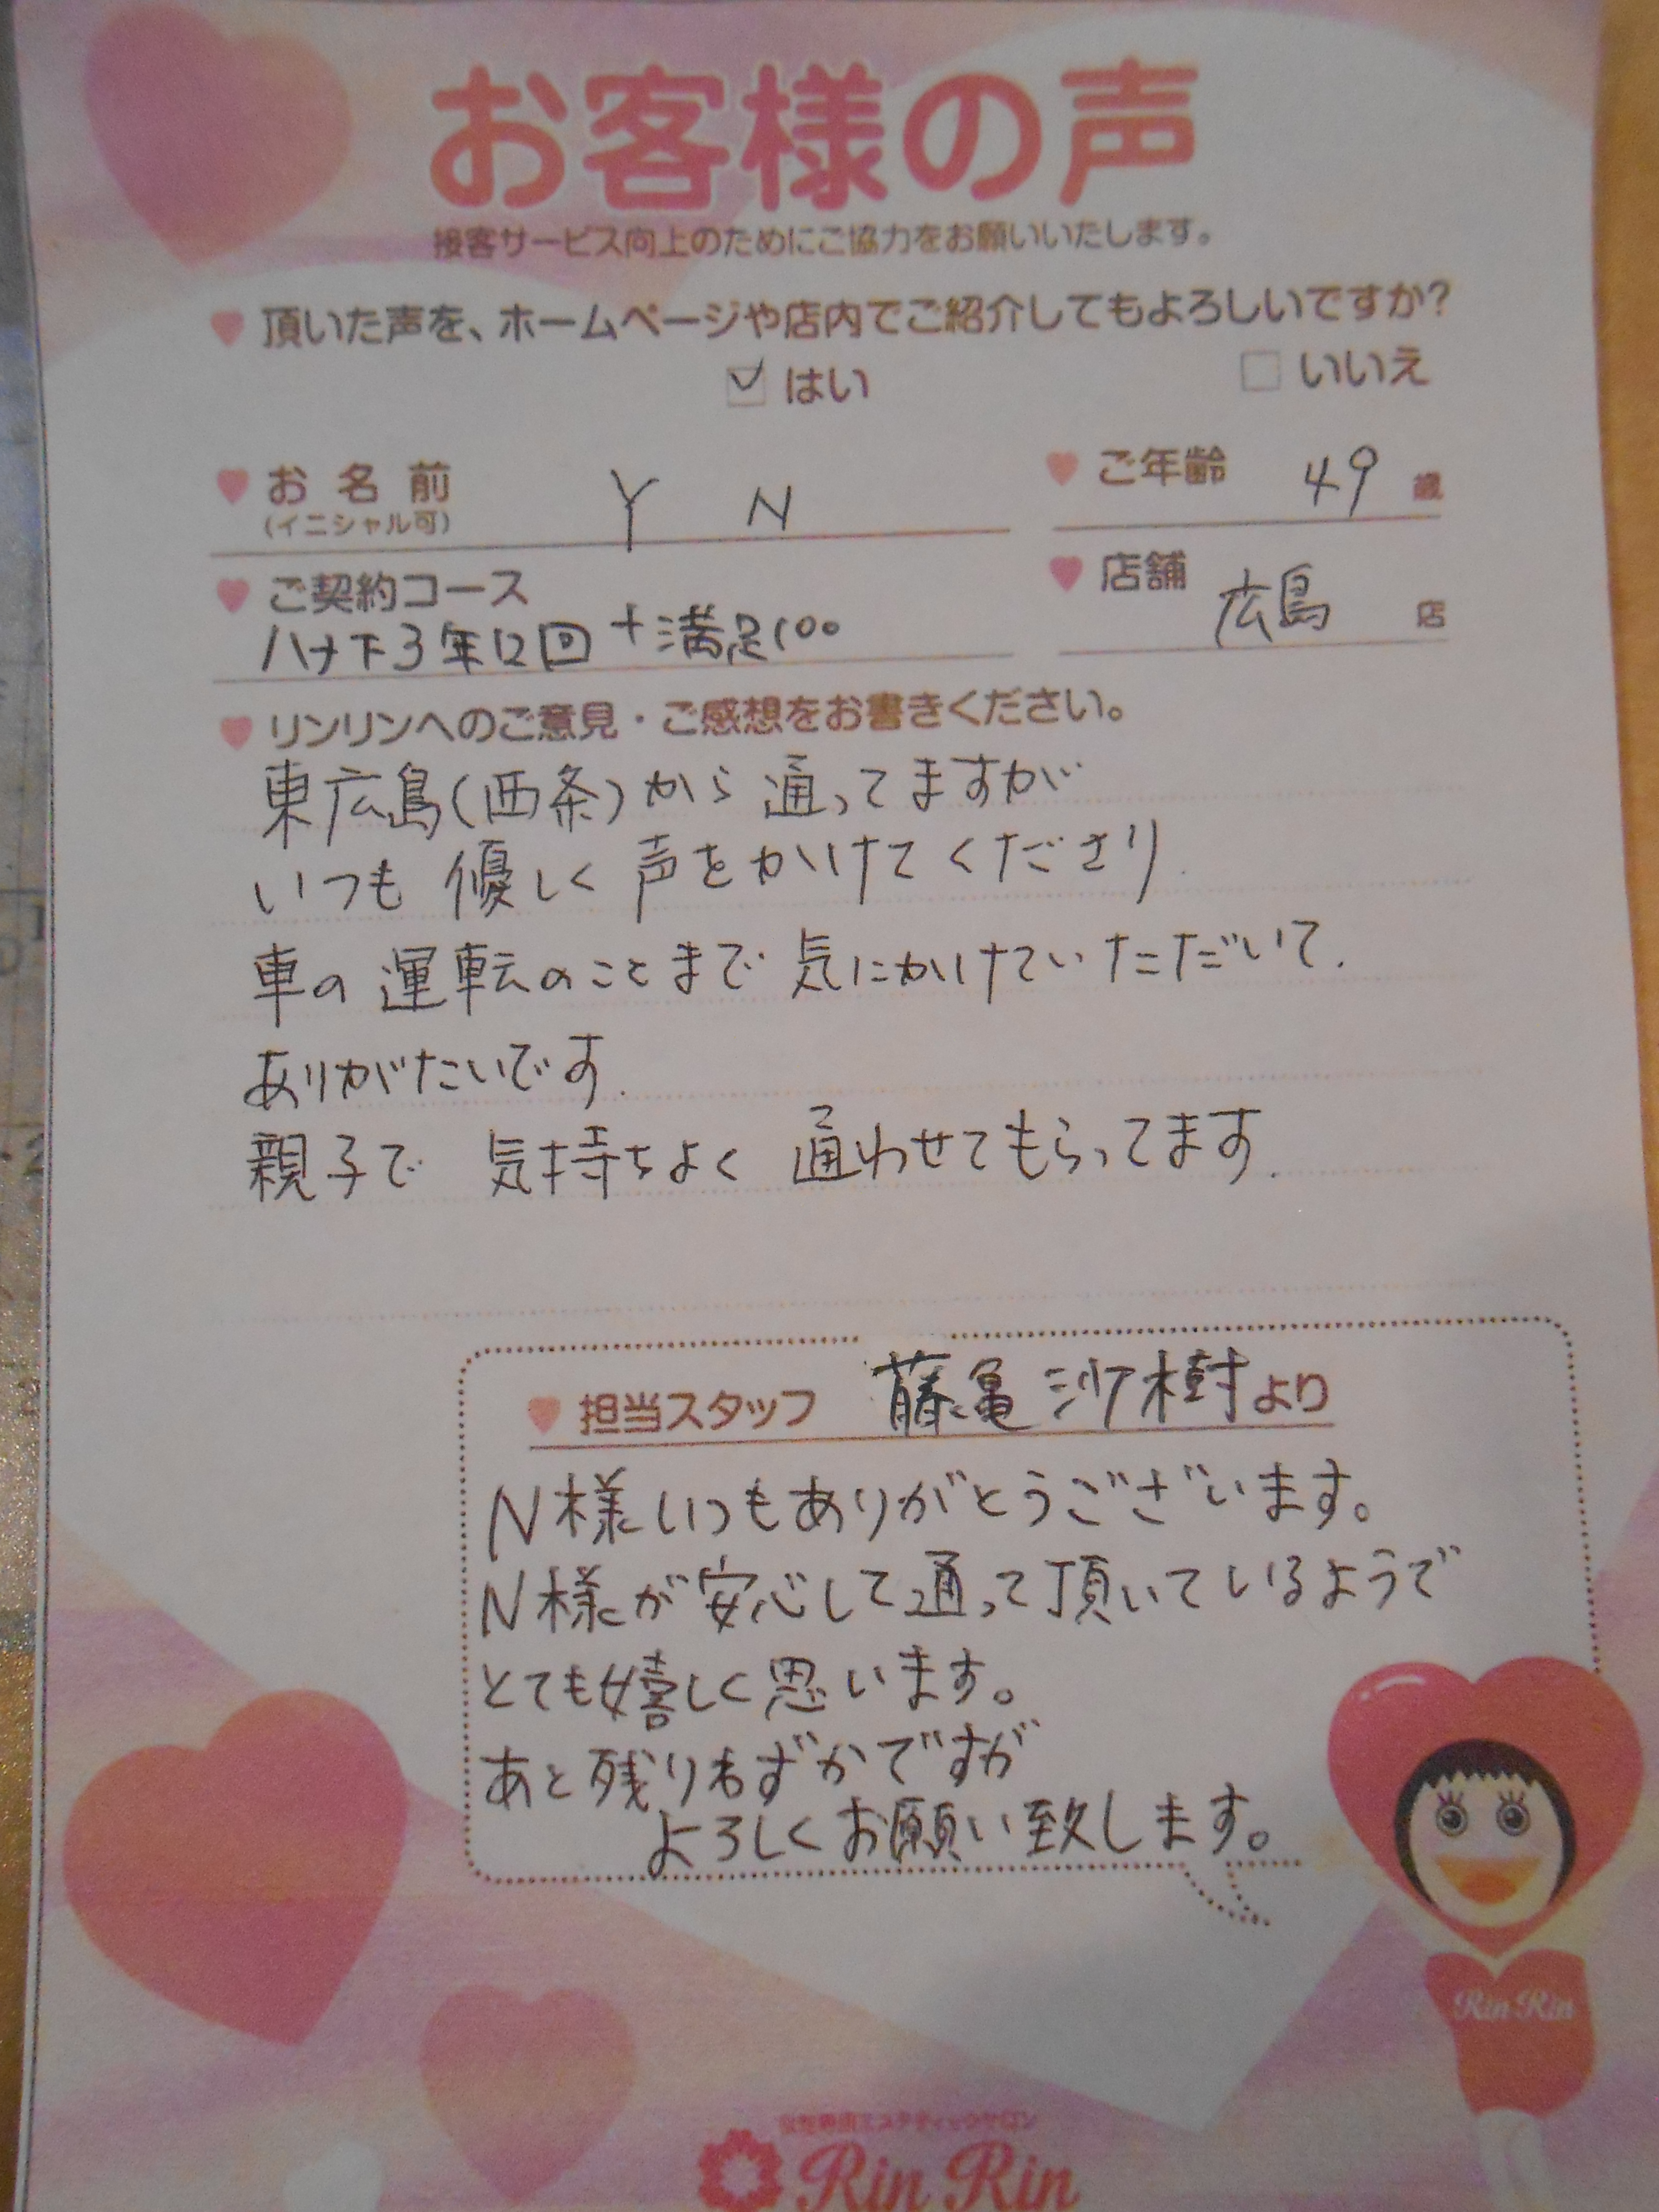 お客様の声
接客サービス向上のためにご協力をお願いいたします。
頂いた声を、ホームページや店内でご紹介してもよろしいですか?
はい いいえ
お名前 Y N ご年齢 49 歳
(イニシャル可)
ご契約コース 店舗 広島 店
ハナ下3年12回+満足100
リンリンへのご意見・ご感想をお書きください。
東広島(西条)から通ってますが
いつも優しく声をかけてくださり
車の運転のことまで気にかけていただいて.
ありがたいです.
親子で 気持ちよく 通わせてもらってます.
担当スタッフ 藤亀 沙樹より
N様いつもありがとうございます。
N様が安心して通って頂いているようで
とても嬉しく思います。
あと残りわずかですが
よろしくお願い致します。
Rin Rin
女性専用エステティックサロン
Rin Rin